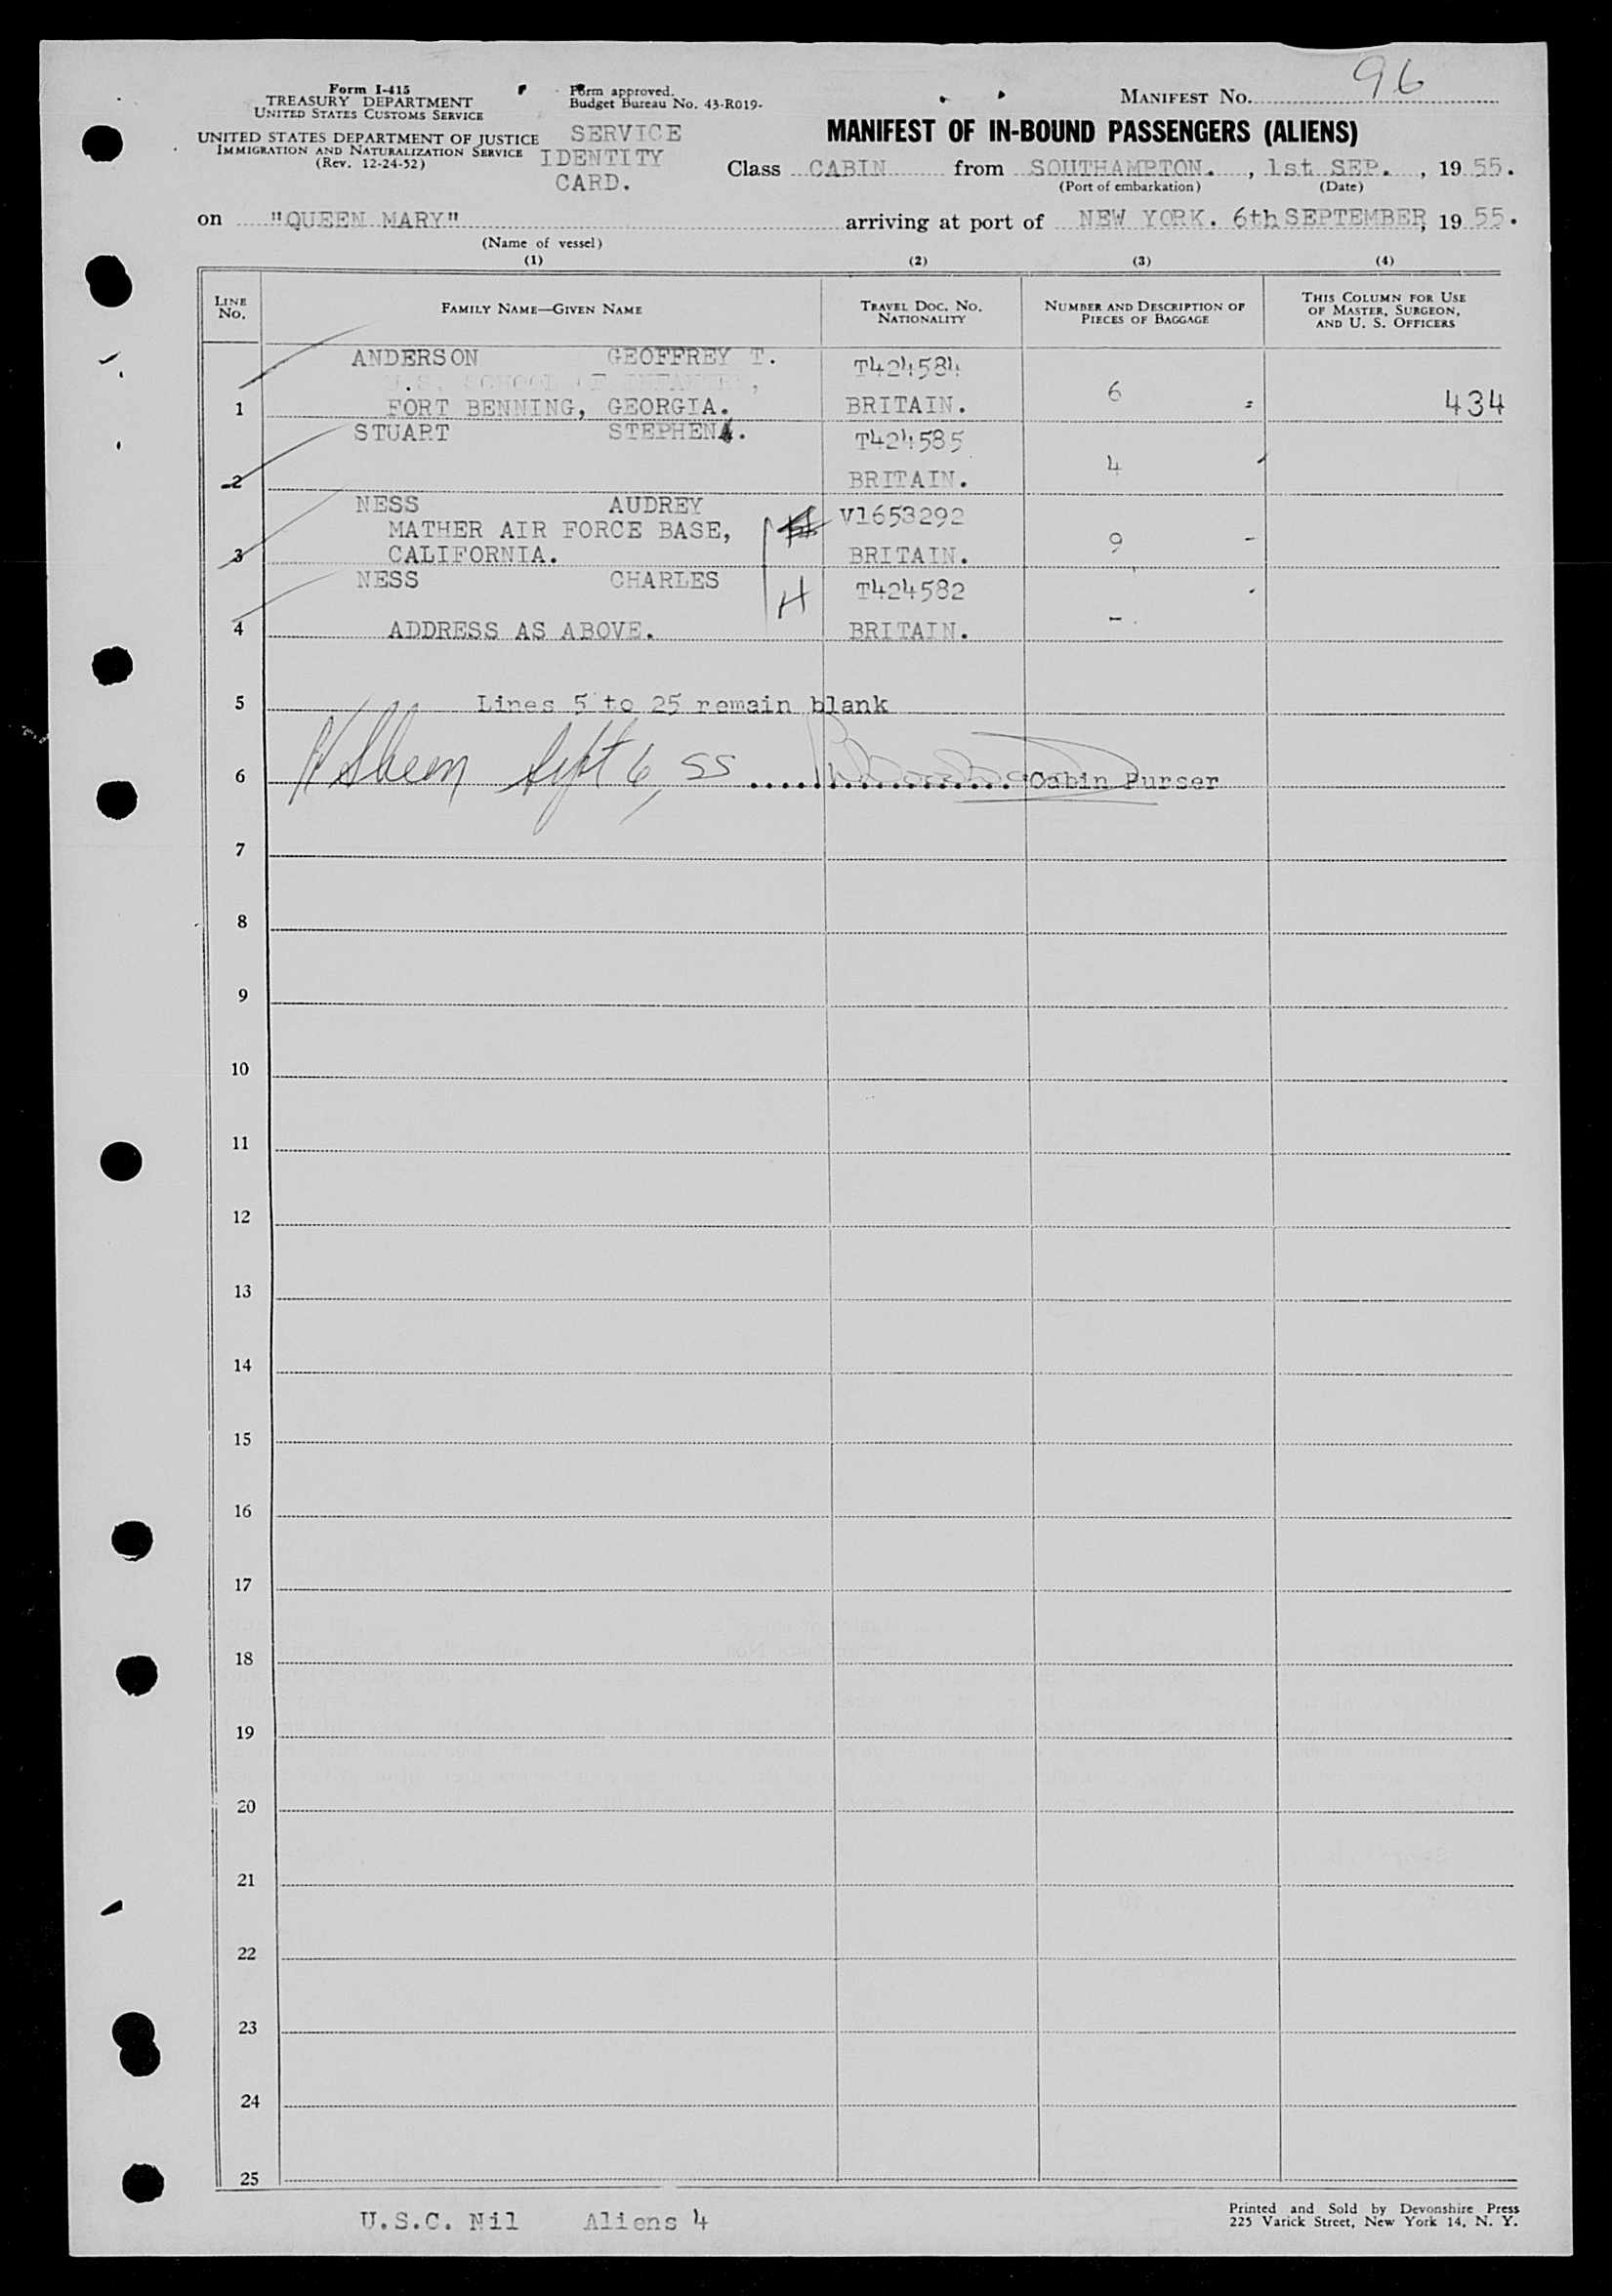 96
Form I-415
TREASURY DEPARTMENT
UNITED STATES CUSTOMS SERVICE
UNITED STATES DEPARTMENT OF JUSTICE
IMMIGRATION AND NATURALIZATION SERVICE
(Rev. 12-24-52)
Form approved.
Budget Bureau No. 43-R019-
SERVICE
IDENTITY
CARD.
MANIFEST NO.
MANIFEST OF IN-BOUND PASSENGERS (ALIENS)
Class CABIN from SOUTHAMPTON. , 1st SEP. , 19 55.
(Port of embarkation) (Date)
on "QUEEN MARY" arriving at port of NEW YORK. 6th SEPTEMBER, 19 55.
(Name of vessel)
(1) (2) (3) (4)
LINE NO.
FAMILY NAME—GIVEN NAME
TRAVEL DOC. NO. NATIONALITY
NUMBER AND DESCRIPTION OF PIECES OF BAGGAGE
THIS COLUMN FOR USE OF MASTER, SURGEON, AND U. S. OFFICERS
ANDERSON GEOFFREY T. T424584
U.S. SCHOOL OF INFANTRY,
1 FORT BENNING, GEORGIA. BRITAIN. 6 434
STUART STEPHEN. T424585
2 BRITAIN. 4
NESS AUDREY V1653292
MATHER AIR FORCE BASE,
3 CALIFORNIA. BRITAIN. 9 -
NESS CHARLES H T424582
4 ADDRESS AS ABOVE. BRITAIN. -
5 Lines 5 to 25 remain blank
6 Sept 6, 55 Cabin Purser
7
8
9
10
11
12
13
14
15
16
17
18
19
20
21
22
23
24
25
U.S.C. Nil Aliens 4
Printed and Sold by Devonshire Press
225 Varick Street, New York 14, N. Y.